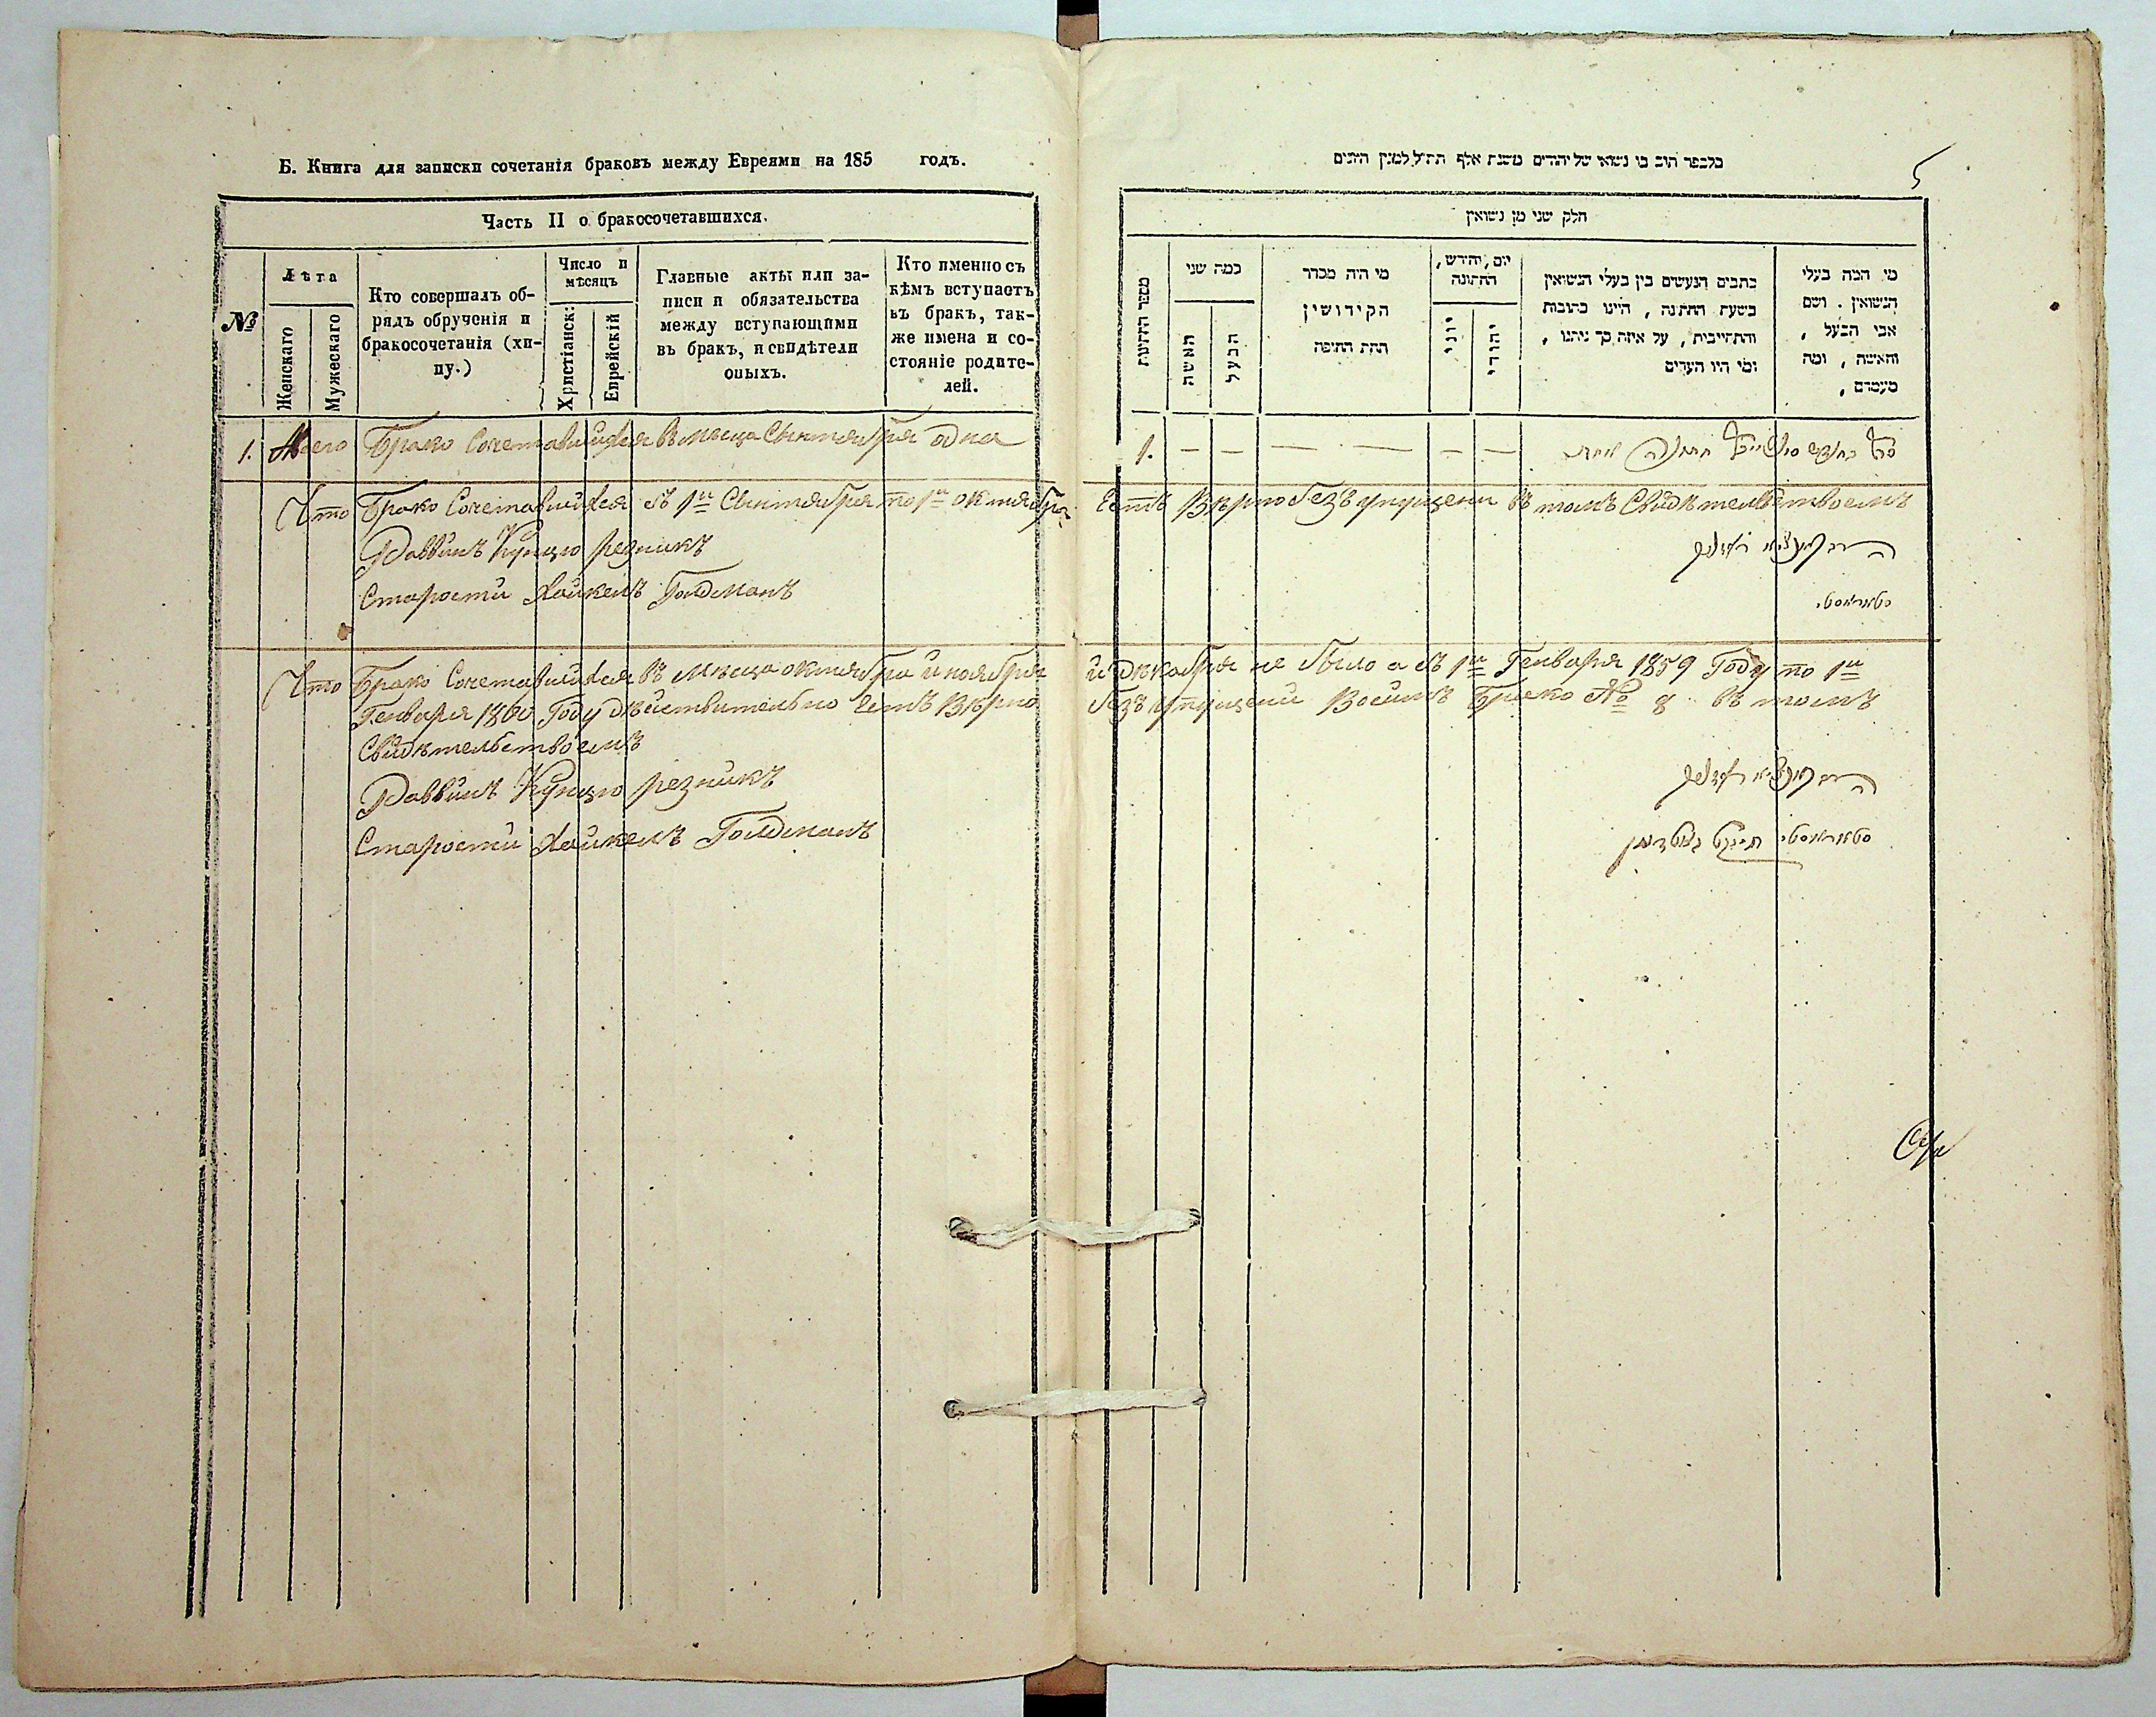 Б. Книга для записки сочетанія браковъ между Евреями на 185 годъ.
Часть II о бракосочетавшихся.
№
Лѣта
Женскаго
Мужескаго
Кто совершалъ об-
рядъ обрученія и
бракосочетанія (хи-
пу.)
Число и
мѣсяцъ
Христіанск:
Еврейскій
Главные акты или за-
писи и обязательства
между вступающими
въ бракъ, и свидѣтели
оныхъ.
Кто именно съ
кѣмъ вступаетъ
въ бракъ, так-
же имена и со-
стояніе родите-
лей.
1. Всего Брако Сочетавшихся въ месца Сынтября одна
Что Брако Сочетавшихся съ 1го Сынтября по 1го октября
Раввинъ Кунцю резникъ
Старости Хайкелъ Голдманъ
Что Брако Сочетавшихся въ Мѣсца октября и ноября
Генваря 1860 Году дѣйствительно Естъ Вѣрно
Свидѣтелствоемъ
Раввинъ Кунцю резникъ
Старости Хайкелъ Голдманъ
5
חלק שני מן נשואין
מספר החתונות
כמה שני
האשה
הבעל
מי היה מסדר
הקידושין
תחת החופה
יום, וחודש,
החתונה
יוני
יהודי
כתבים הנעשים בין בעלי הנשואין
בשעת החתונה, היינו כתובות
והתחייבות, על איזה סך ניתנו,
ומי היו העדים
מי המה בעלי
הנשואין. ושם
אבי הבעל,
והאשה, ומה
מעמדם,
1.
Естъ Вѣрно безъ упущени въ томъ Свидѣтелствоемъ
סטאראסטי
и дѣкабря не было а съ 1го Генваря 1859 Году по 1го
безъ упущени Восимъ Брако № 8 въ томъ
סטאראסטי חייקל גאלדמן